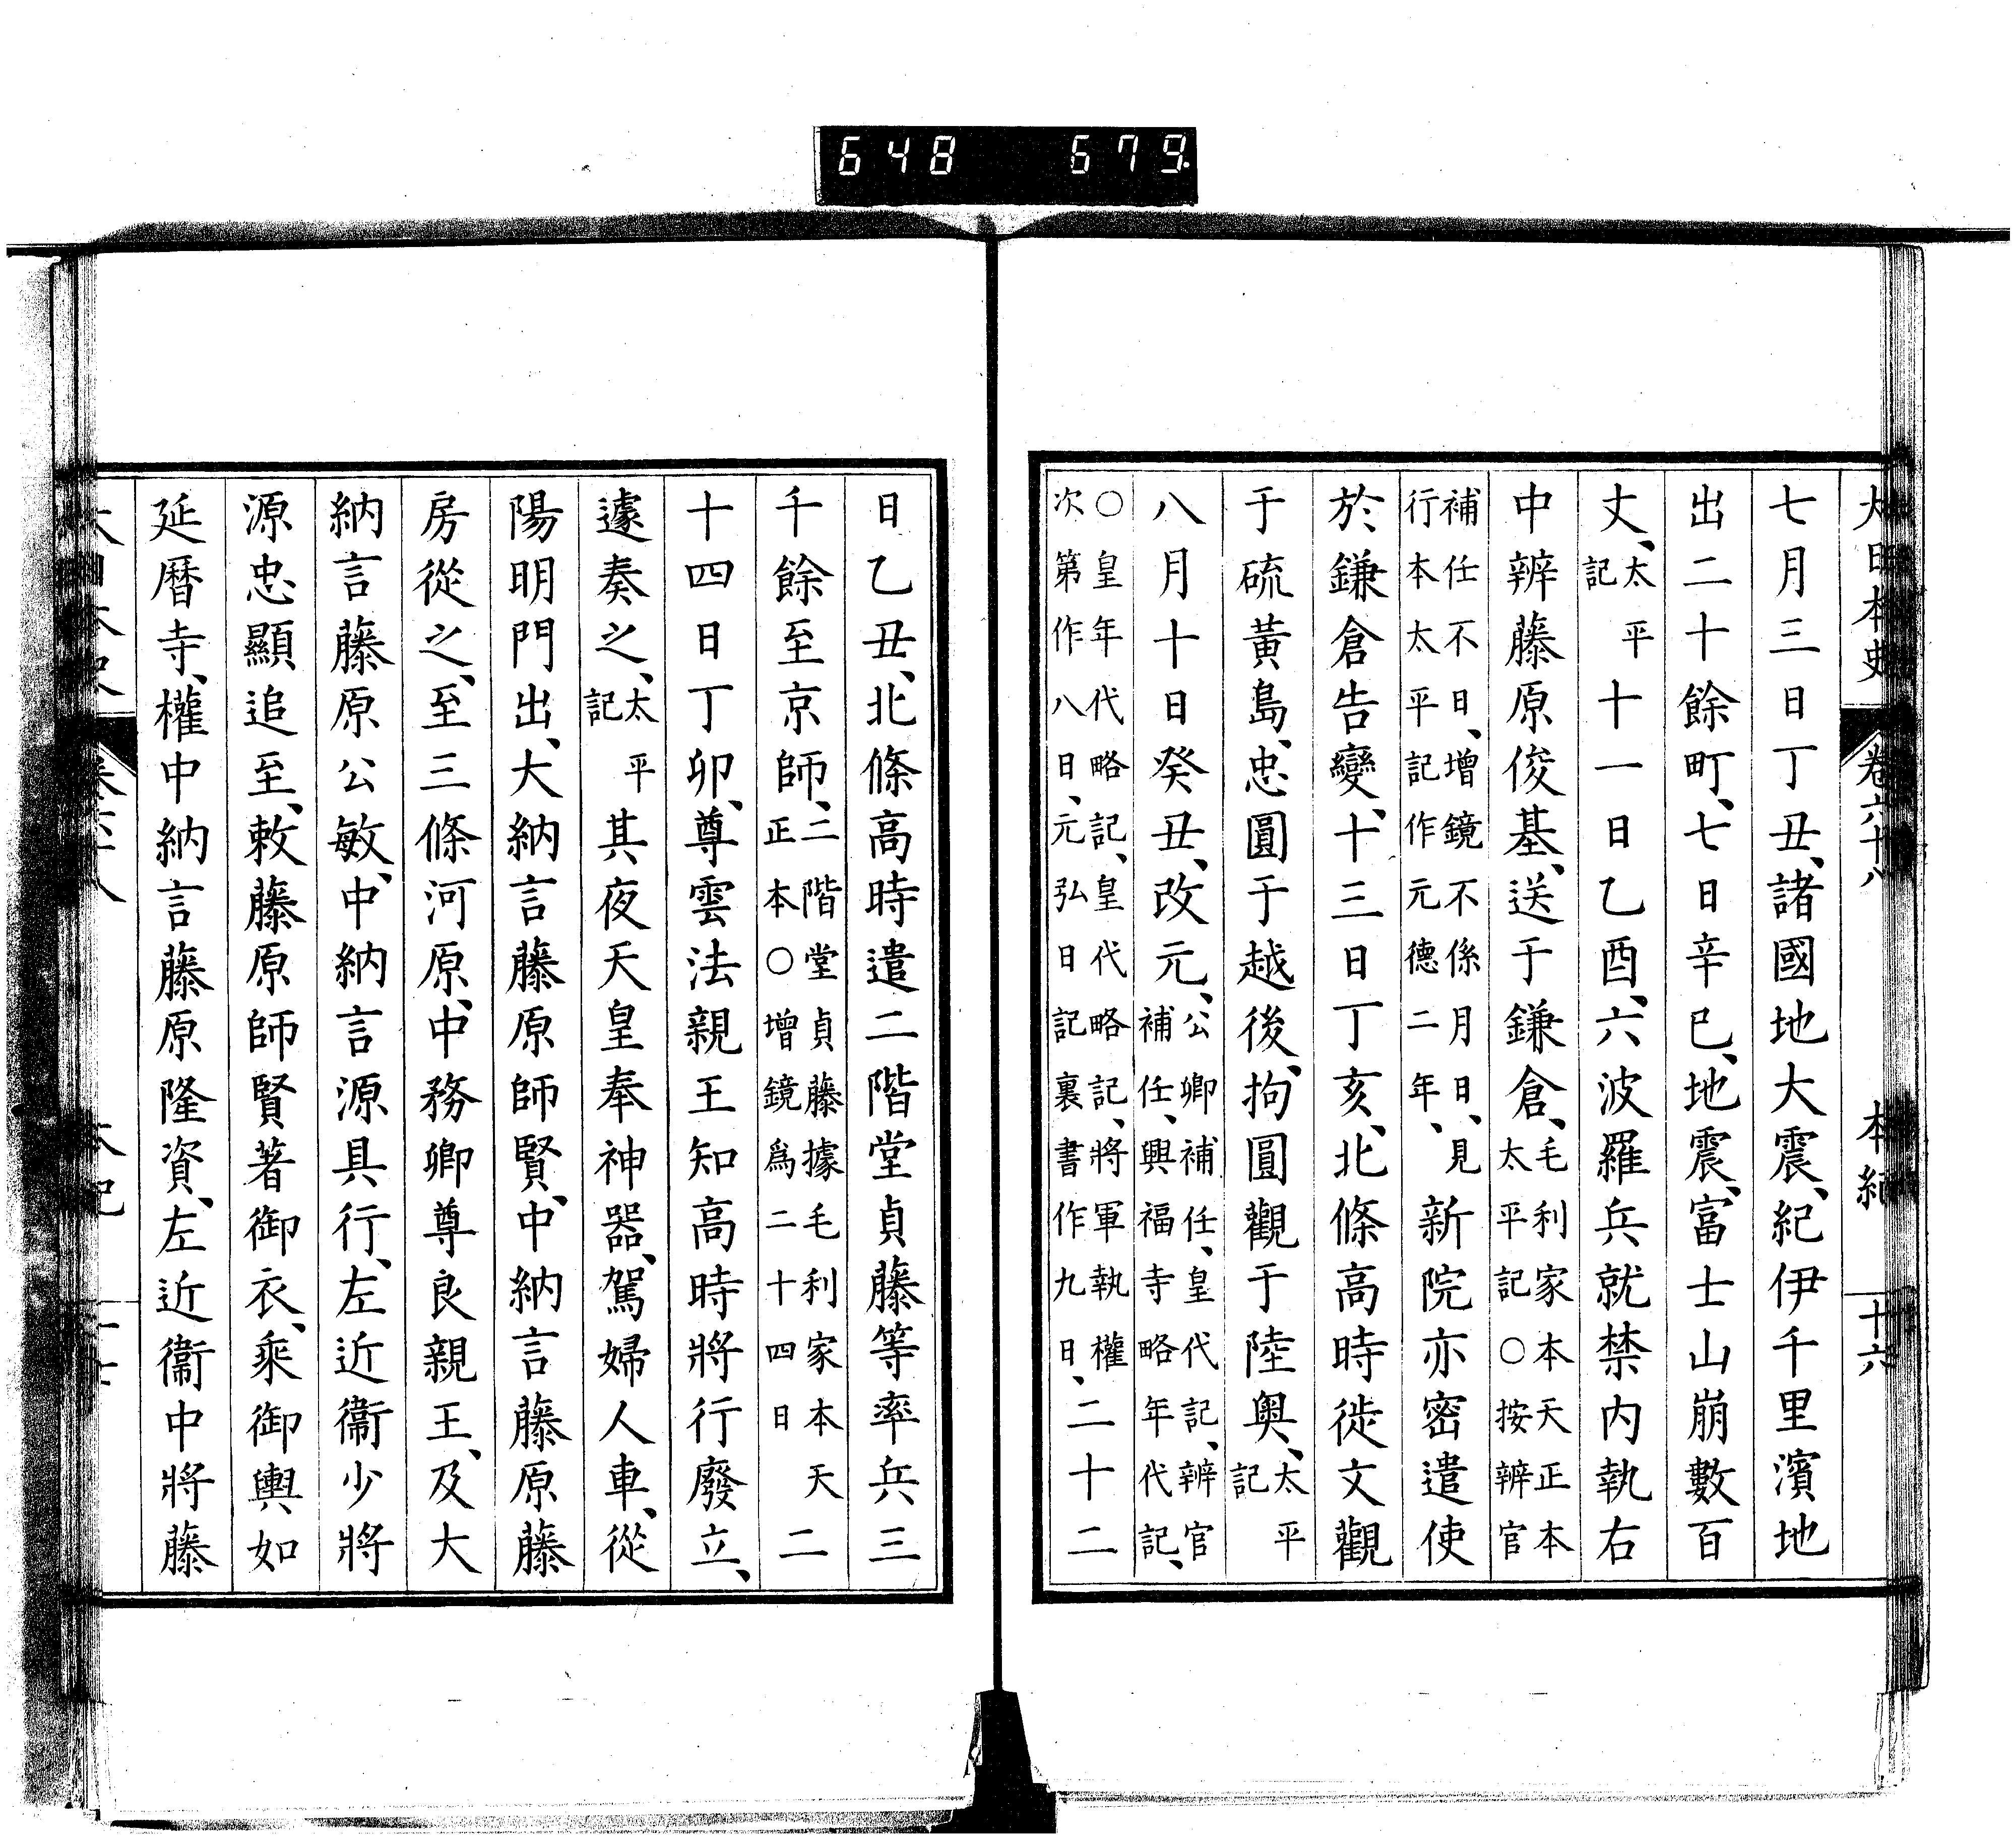 648 679
大日本史 卷六十八 本紀 十六
七月三日丁丑、諸國地大震、紀伊千里濱地
出二十餘町、七日辛巳、地震、富士山崩數百
丈、太平記十一日乙酉、六波羅兵就禁内執右
中辨藤原俊基、送于鎌倉、毛利家本天正本太平記○按辨官
補任不日、増鏡不係月日、見行本太平記作元德二年、新院亦密遣使
於鎌倉告變、十三日丁亥、北條高時徙文觀
于硫黃島、忠圓于越後、拘圓觀于陸奧、太平記
八月十日癸丑、改元、公卿補任、皇代記、辨官補任、興福寺略年代記、
○皇年代略記、皇代略記、將軍執權次第作八日、元弘日記裏書作九日、二十二
日乙丑、北條高時遣二階堂貞藤等率兵三
千餘至京師、二階堂貞藤據毛利家本天正本○增鏡爲二十四日二
十四日丁卯、尊雲法親王知高時將行廢立、
遽奏之、太平記其夜天皇奉神器、駕婦人車、從
陽明門出、大納言藤原師賢、中納言藤原藤
房從之、至三條河原、中務卿尊良親王、及大
納言藤原公敏、中納言源具行、左近衞少將
源忠顯追至、敕藤原師賢著御衣、乘御輿如
延曆寺、權中納言藤原隆資、左近衞中將藤